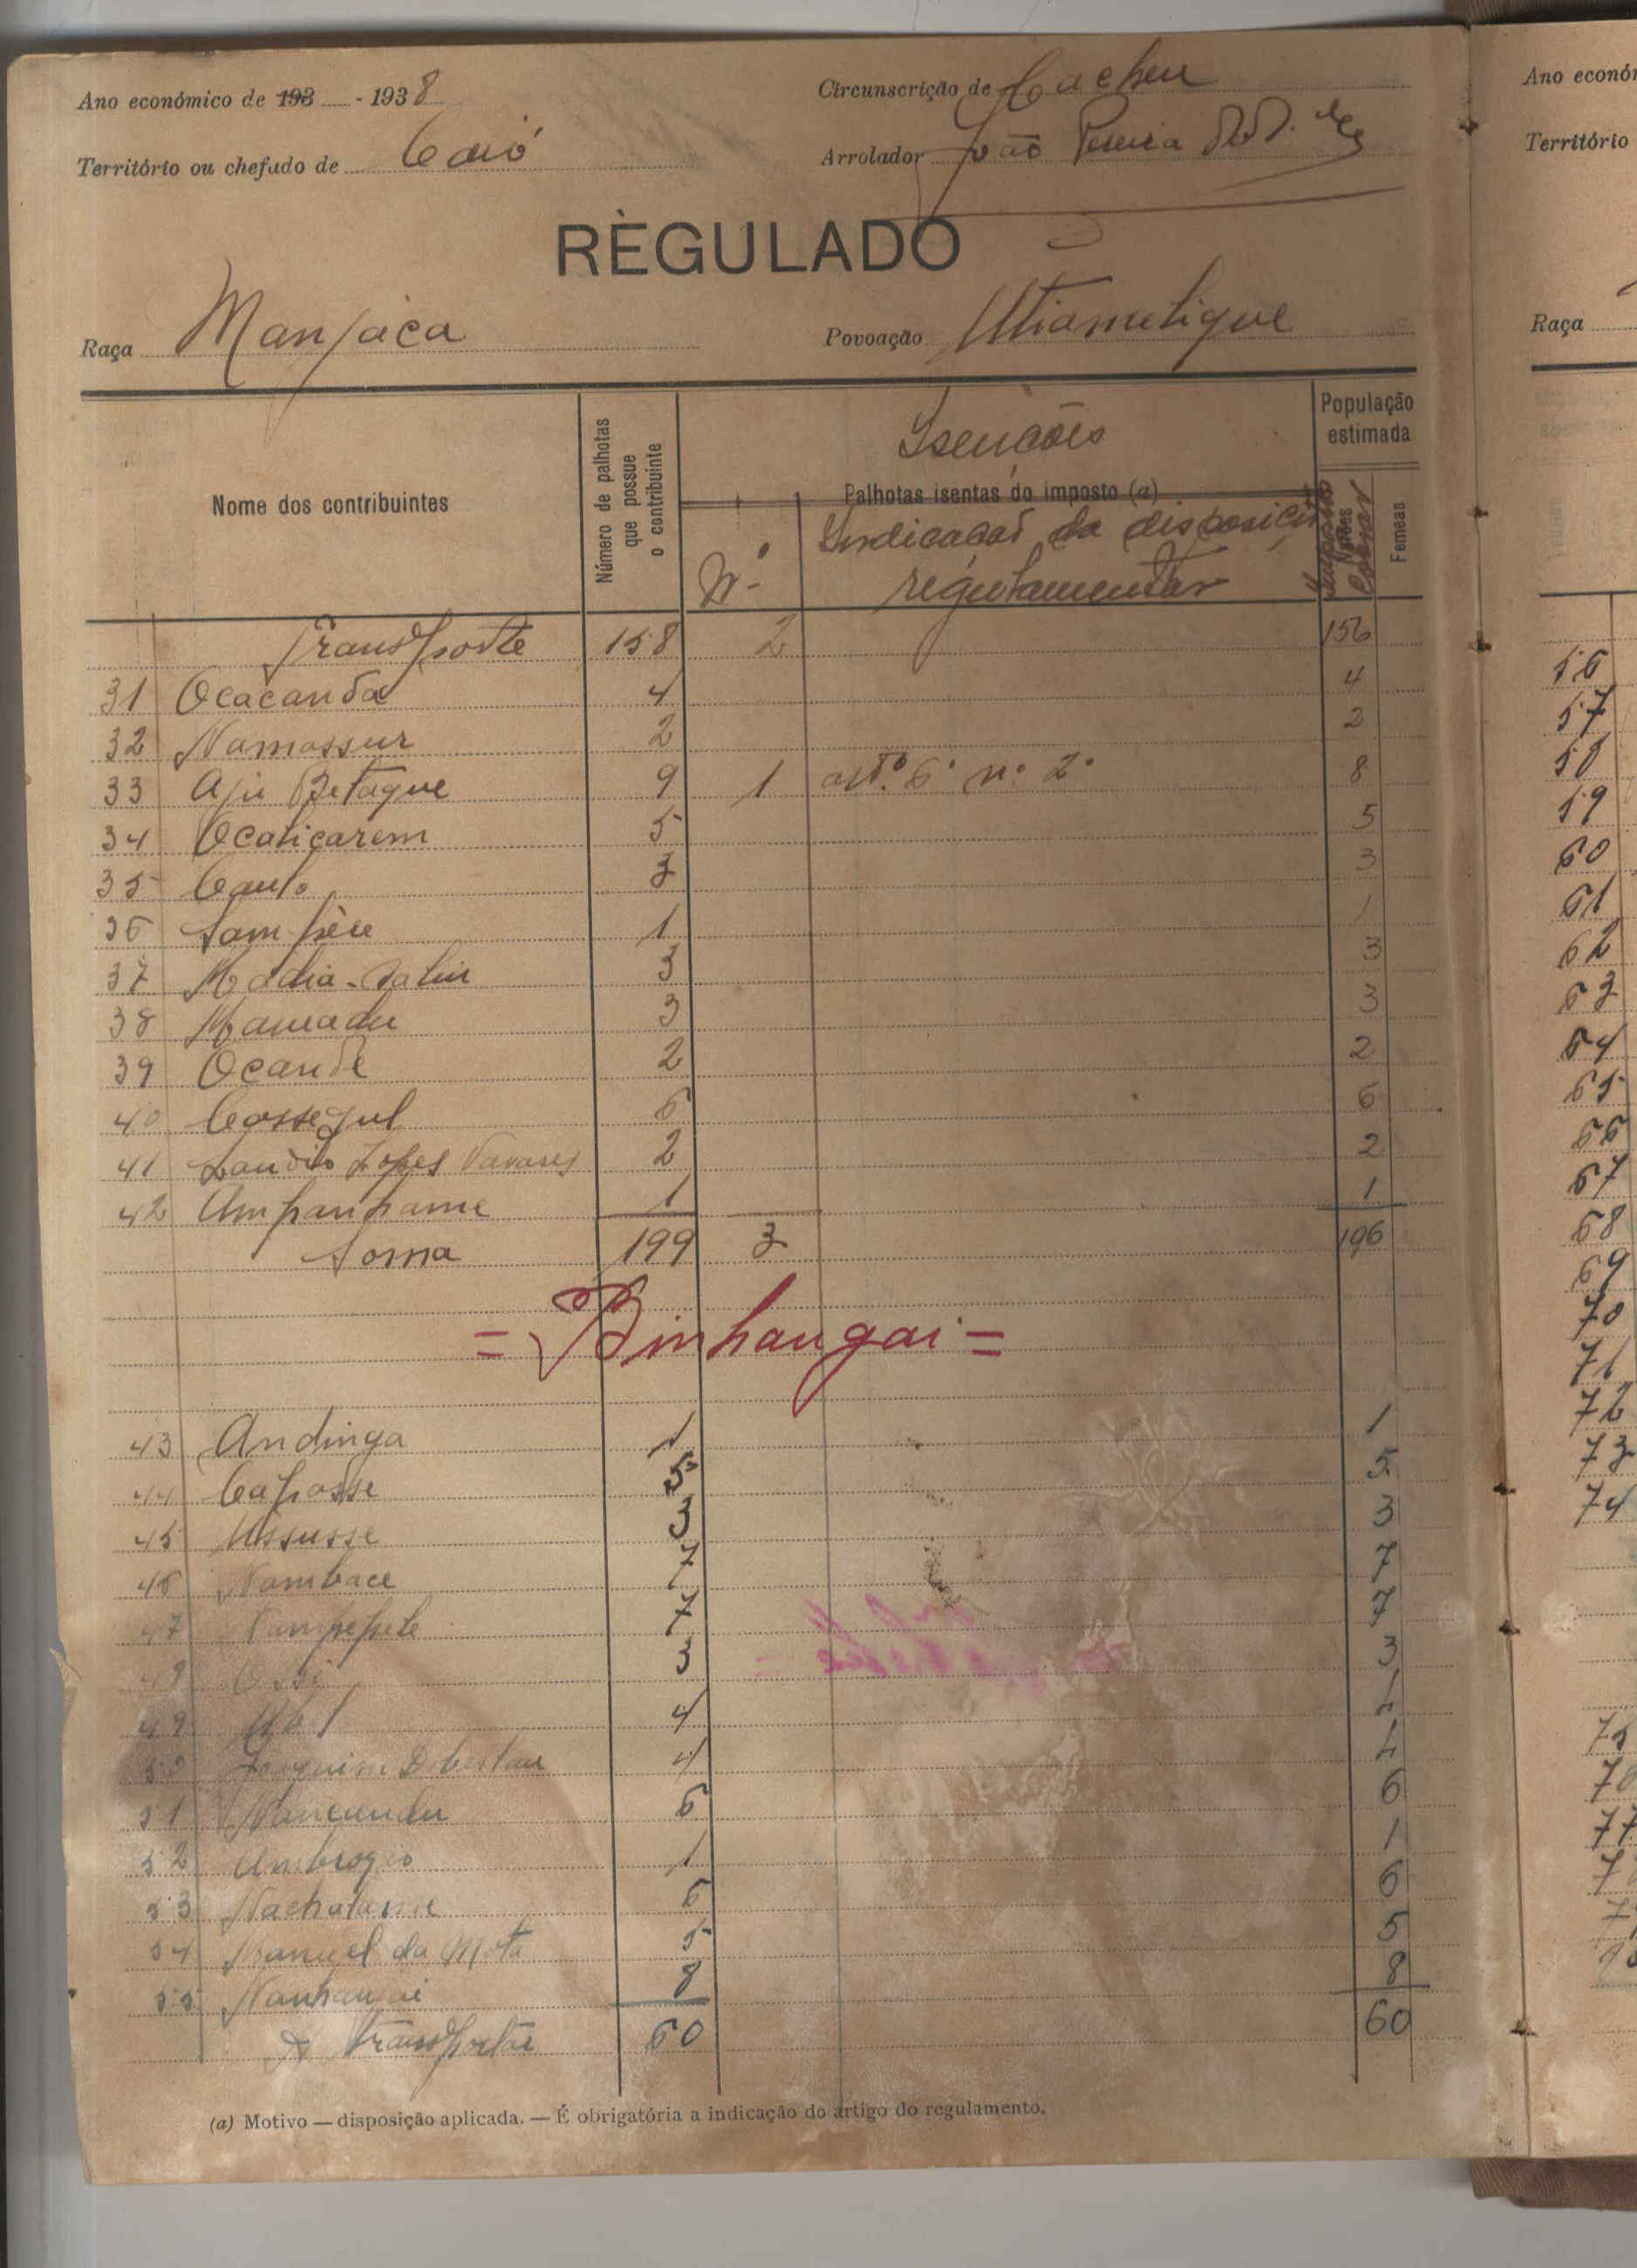 Ano económico de 193 - 1938
Circunscrição de Cacheu
Território ou chefado de Caió
Arrolador João Pereira
REGULADO
Raça Manjaca
Povoação Utiametique
Nome dos contribuintes
Número de palhotas que possue o contribuinte
Isenções
Palhotas isentas do imposto (a)
Nº
Indicação da disposição
regulamentar
População estimada
Femeas
Transporte 158 2 156
31 Ocacanda 4 4
32 Namassur 2 2
33 Aju Betaque 9 1 artº 6º nº 2º 8
34 Ocaticarem 5 5
35 Caulo 3 3
36 1 1
37 3 3
38 Mamadu 3 3
39 Ocande 2 2
40 Cossegul 6 6
41 Lopes Tavares 2 2
42 Ampanhame 1 1
Soma 199 3 196
= Binhangai =
43 Andinga 1 1
44 Caposse 5 5
45 Ussusse 3 3
46 Nambace 7 7
47 7 7
48 3 3
49 4 4
50 Joaquim 4 4
51 6 6
52 Ambrogio 1 1
53 6 6
54 Manuel da Mota 5 5
55 8 8
A transportar 60 60
(a) Motivo — disposição aplicada. — É obrigatória a indicação do artigo do regulamento.
Ano económ
Território
Raça
56
57
58
59
60
61
62
63
64
65
66
67
68
69
70
71
72
73
74
75
76
77